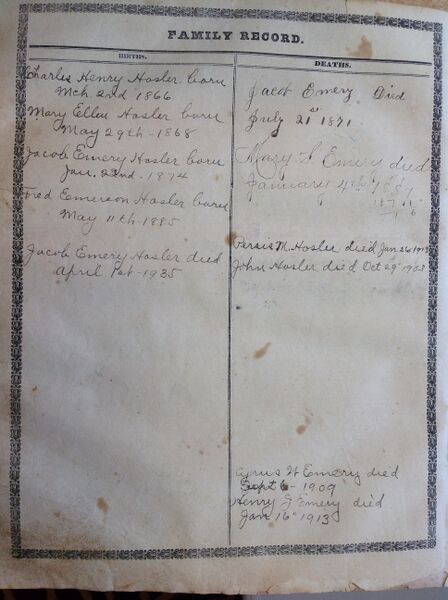 FAMILY RECORD.
BIRTHS.
Charles Henry Hosler born
Mch 2nd 1866
Mary Ellen Hosler born
May 29th - 1868
Jacob Emery Hosler born
Jan. 22nd - 1874
Fred Emerson Hosler born
May 11th - 1885
Jacob Emery Hosler died
April 1st - 1935
DEATHS.
Jacob Emery Died
July 21st 1871
Mary S Emery died
January 4th 1887
Persis M. Hosler died Jan 26 1913
John Hosler died Oct 29 1903
Cyrus W Emery died
Sept 6 - 1909
Henry J Emery died
Jan 16th 1913